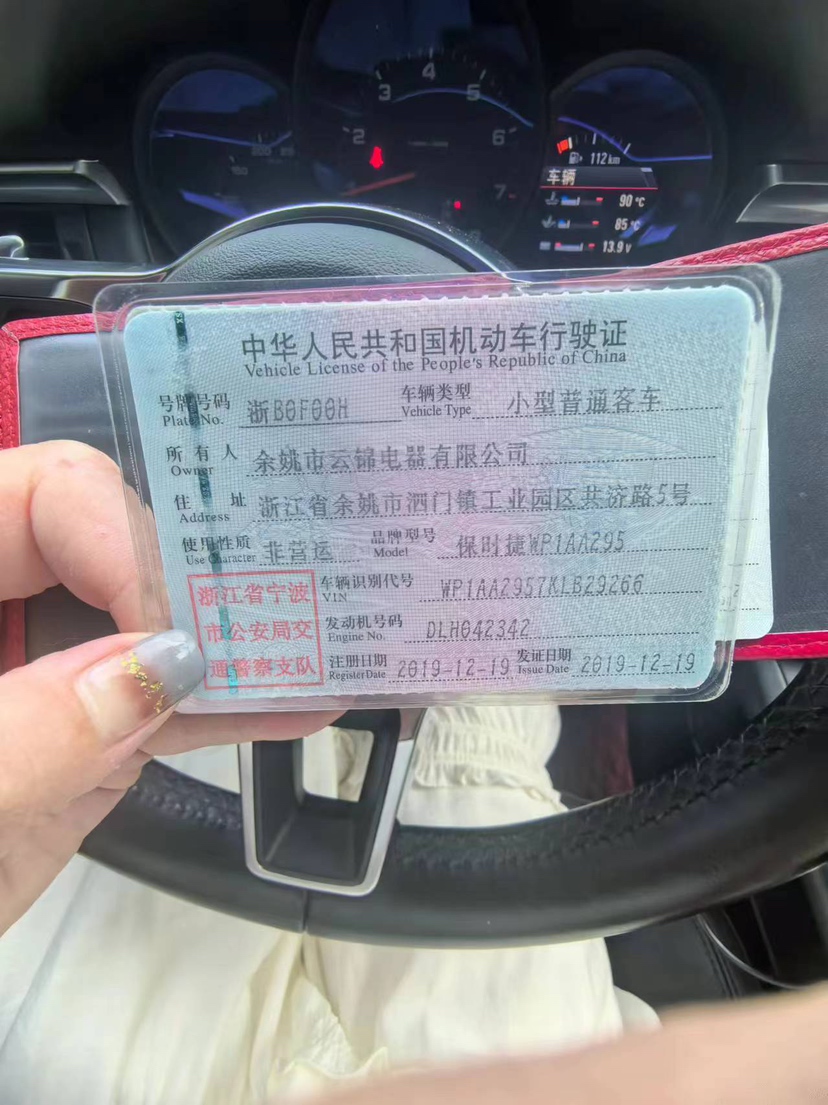 4
3
5
2
6
7
112 km
车辆
90 °C
85 °C
13.9 V
中华人民共和国机动车行驶证
Vehicle License of the People's Republic of China
号牌号码 浙B0F00H 车辆类型 小型普通客车
Plate No. Vehicle Type
所有人 余姚市云锦电器有限公司
Owner
住址 浙江省余姚市泗门镇工业园区共济路5号
Address
使用性质 非营运 品牌型号 保时捷WP1AA295
Use Character Model
浙江省宁波
市公安局交
通警察支队
车辆识别代号 WP1AA2957KLB29266
VIN
发动机号码 DLH042342
Engine No.
注册日期 2019-12-19 发证日期 2019-12-19
Register Date Issue Date